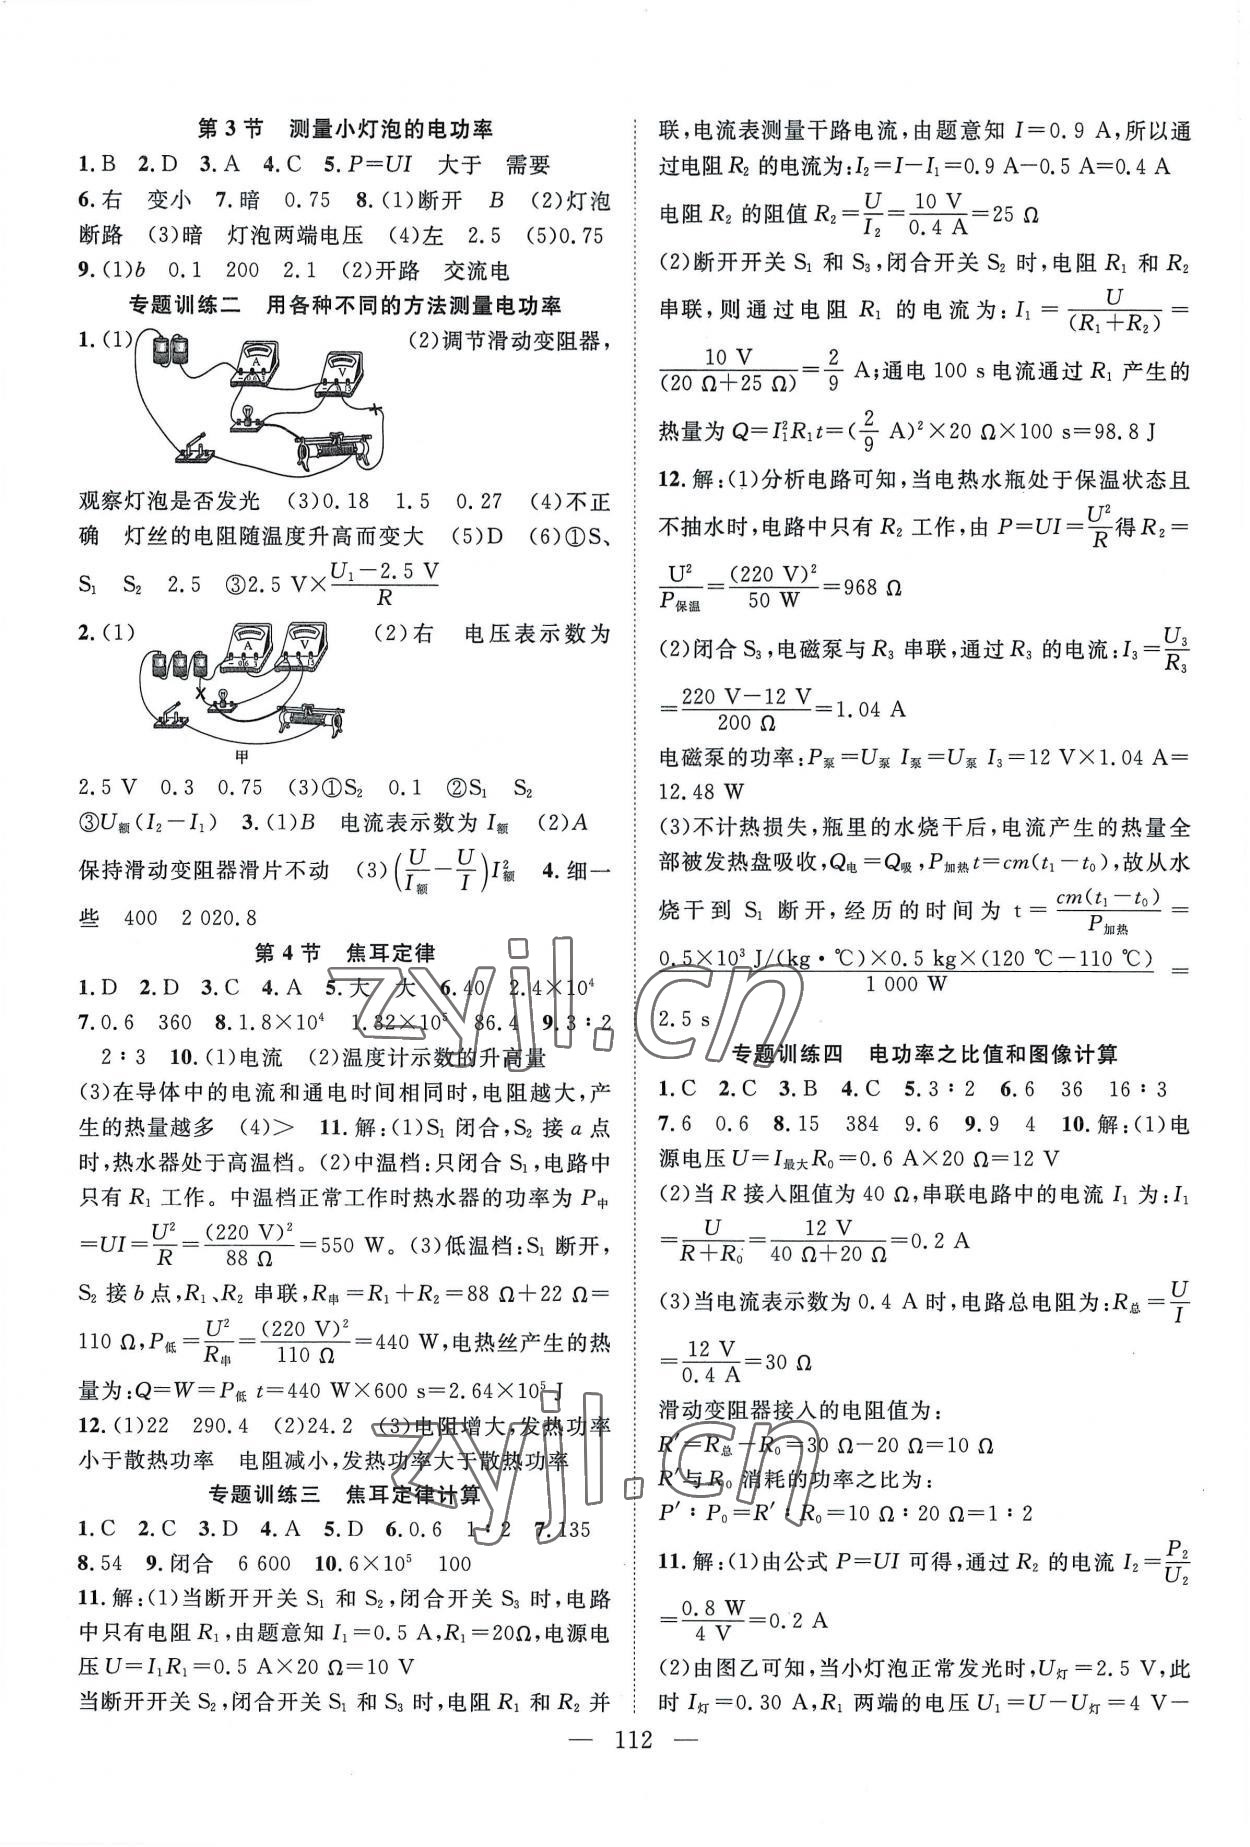 第3节　测量小灯泡的电功率
1.B　2.D　3.A　4.C　5.P=UI　大于　需要
6.右　变小　7.暗　0.75　8.(1)断开　B　(2)灯泡
断路　(3)暗　灯泡两端电压　(4)左　2.5　(5)0.75
9.(1)b　0.1　200　2.1　(2)开路　交流电
专题训练二　用各种不同的方法测量电功率
1.(1)　(2)调节滑动变阻器,
观察灯泡是否发光　(3)0.18　1.5　0.27　(4)不正
确　灯丝的电阻随温度升高而变大　(5)D　(6)①S、
S₁　S₂　2.5　③2.5 V×(U₁−2.5 V)/R
2.(1)　(2)右　电压表示数为
甲
2.5 V　0.3　0.75　(3)①S₂　0.1　②S₁　S₂
③U额(I₂−I₁)　3.(1)B　电流表示数为 I额　(2)A
保持滑动变阻器滑片不动　(3)(U/I额−U/I)I²额　4.细一
些　400　2 020.8
第4节　焦耳定律
1.D　2.D　3.C　4.A　5.大　大　6.40　2.4×10⁴
7.0.6　360　8.1.8×10⁴　1.32×10⁵　86.4　9.3∶2
2∶3　10.(1)电流　(2)温度计示数的升高量
(3)在导体中的电流和通电时间相同时,电阻越大,产
生的热量越多　(4)>　11.解:(1)S₁ 闭合,S₂ 接 a 点
时,热水器处于高温档。(2)中温档:只闭合 S₁,电路中
只有 R₁ 工作。中温档正常工作时热水器的功率为 P中
=UI=U²/R=(220 V)²/88 Ω=550 W。(3)低温档:S₁ 断开,
S₂ 接 b 点,R₁、R₂ 串联,R串=R₁+R₂=88 Ω+22 Ω=
110 Ω,P低=U²/R串=(220 V)²/110 Ω=440 W,电热丝产生的热
量为:Q=W=P低 t=440 W×600 s=2.64×10⁵J
12.(1)22　290.4　(2)24.2　(3)电阻增大,发热功率
小于散热功率　电阻减小,发热功率大于散热功率
专题训练三　焦耳定律计算
1.C　2.C　3.D　4.A　5.D　6.0.6　1∶2　7.135
8.54　9.闭合　6 600　10.6×10⁵　100
11.解:(1)当断开开关 S₁ 和 S₂,闭合开关 S₃ 时,电路
中只有电阻 R₁,由题意知 I₁=0.5 A,R₁=20Ω,电源电
压 U=I₁R₁=0.5 A×20 Ω=10 V
当断开开关 S₂,闭合开关 S₁ 和 S₃ 时,电阻 R₁ 和 R₂ 并
联,电流表测量干路电流,由题意知 I=0.9 A,所以通
过电阻 R₂ 的电流为:I₂=I−I₁=0.9 A−0.5 A=0.4 A
电阻 R₂ 的阻值 R₂=U/I₂=10 V/0.4 A=25 Ω
(2)断开开关 S₁ 和 S₃,闭合开关 S₂ 时,电阻 R₁ 和 R₂
串联,则通过电阻 R₁ 的电流为:I₁=U/(R₁+R₂)=
10 V/(20 Ω+25 Ω)=2/9 A;通电 100 s 电流通过 R₁ 产生的
热量为 Q=I₁²R₁t=(2/9 A)²×20 Ω×100 s=98.8 J
12.解:(1)分析电路可知,当电热水瓶处于保温状态且
不抽水时,电路中只有 R₂ 工作,由 P=UI=U²/R得 R₂=
U²/P保温=(220 V)²/50 W=968 Ω
(2)闭合 S₃,电磁泵与 R₃ 串联,通过 R₃ 的电流:I₃=U₃/R₃
=(220 V−12 V)/200 Ω=1.04 A
电磁泵的功率:P泵=U泵 I泵=U泵 I₃=12 V×1.04 A=
12.48 W
(3)不计热损失,瓶里的水烧干后,电流产生的热量全
部被发热盘吸收,Q电=Q吸,P加热t=cm(t₁−t₀),故从水
烧干到 S₁ 断开,经历的时间为 t=cm(t₁−t₀)/P加热=
0.5×10³ J/(kg·℃)×0.5 kg×(120 ℃−110 ℃)/1 000 W=
2.5 s
专题训练四　电功率之比值和图像计算
1.C　2.C　3.B　4.C　5.3∶2　6.6　36　16∶3
7.6　0.6　8.15　384　9.6　9.9　4　10.解:(1)电
源电压 U=I最大R₀=0.6 A×20 Ω=12 V
(2)当 R 接入阻值为 40 Ω,串联电路中的电流 I₁ 为:I₁
=U/(R+R₀)=12 V/(40 Ω+20 Ω)=0.2 A
(3)当电流表示数为 0.4 A 时,电路总电阻为:R总=U/I
=12 V/0.4 A=30 Ω
滑动变阻器接入的电阻值为:
R′=R总−R₀=30 Ω−20 Ω=10 Ω
R′与 R₀ 消耗的功率之比为:
P′∶P₀=R′∶R₀=10 Ω∶20 Ω=1∶2
11.解:(1)由公式 P=UI 可得,通过 R₂ 的电流 I₂=P₂/U₂
=0.8 W/4 V=0.2 A
(2)由图乙可知,当小灯泡正常发光时,U灯=2.5 V,此
时 I灯=0.30 A,R₁ 两端的电压 U₁=U−U灯=4 V−
— 112 —
zyjl.cn
zyjl.cn